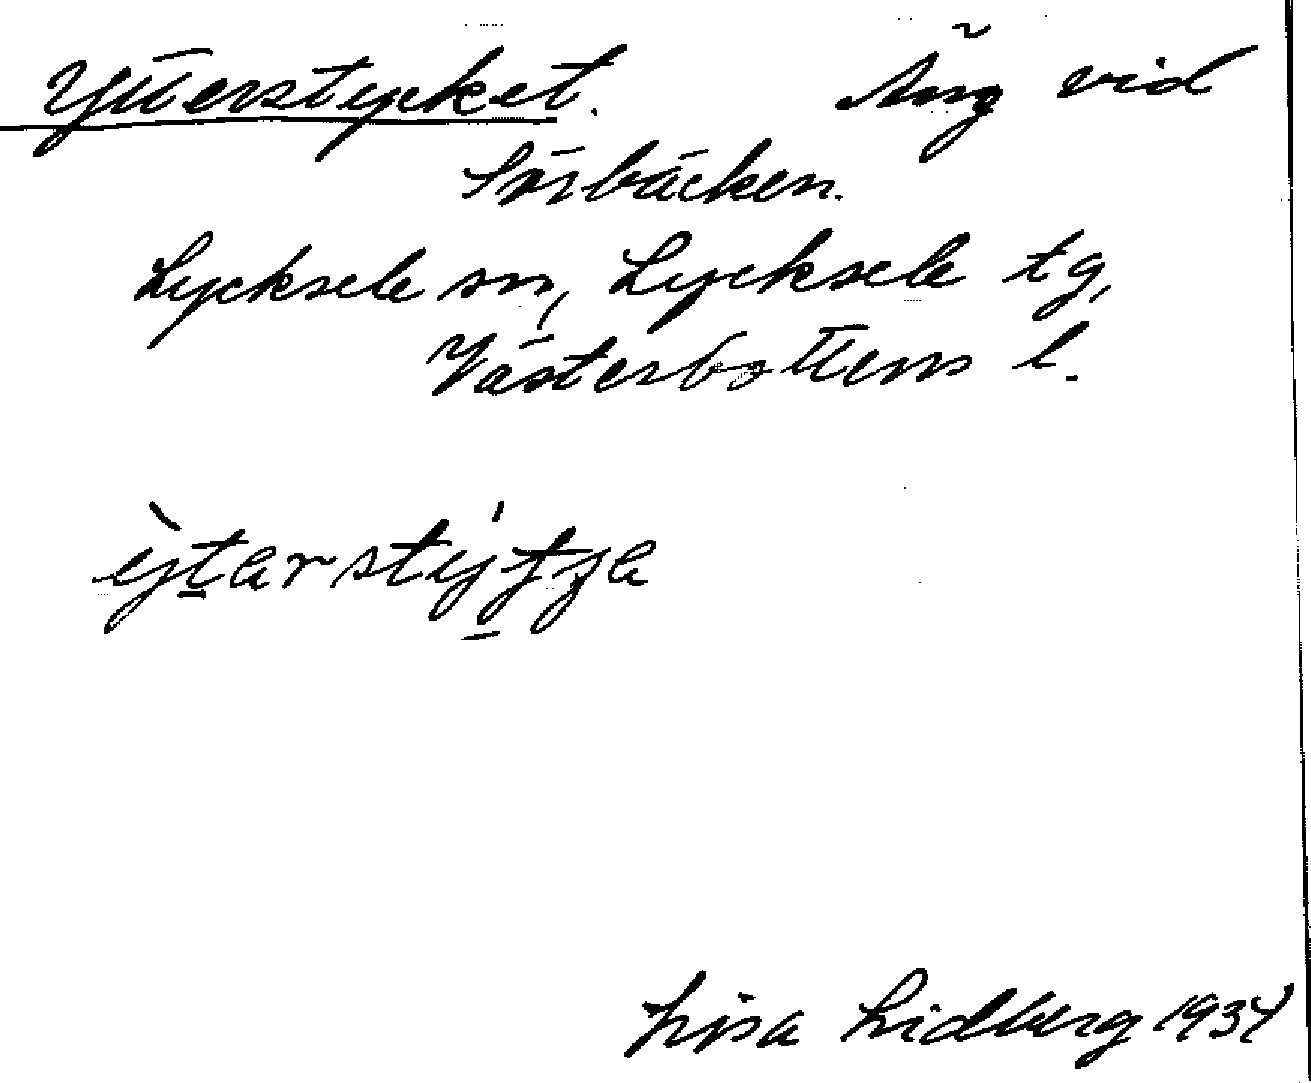 Ytterstycket. Äng vid
Sörbäcken.
Lycksele sn, Lycksele tg,
Västerbottens l.
Lisa Lidberg 1934